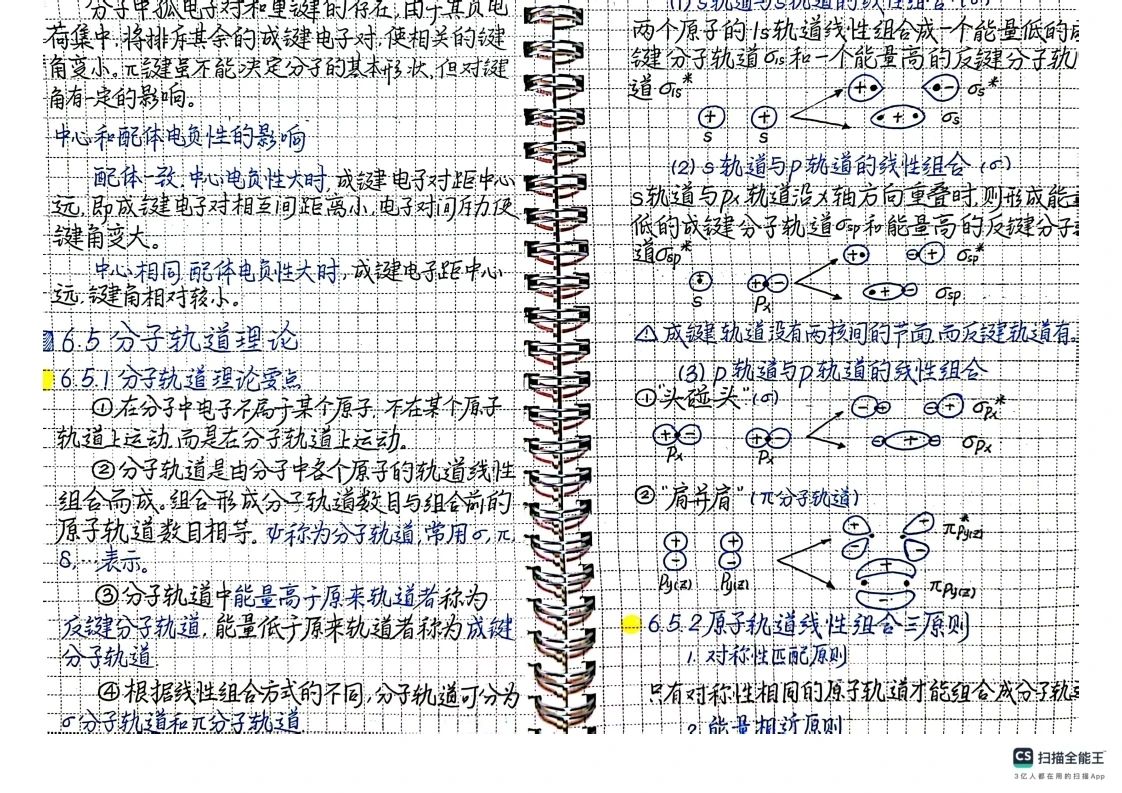 分子中孤电子对和重键的存在,由于其负电
荷集中,将排斥其余的成键电子对,使相关的键
角变小。π键虽不能决定分子的基本形状,但对键
角有一定的影响。
中心和配体电负性的影响
配体一致,中心电负性大时,成键电子对距中心
远,即成键电子对相互间距离小,电子对间斥力使
键角变大。
中心相同,配体电负性大时,成键电子距中心
远,键角相对较小。
6.5 分子轨道理论
6.5.1 分子轨道理论要点
①在分子中电子不属于某个原子,不在某个原子
轨道上运动,而是在分子轨道上运动。
②分子轨道是由分子中各个原子的轨道线性
组合而成。组合形成分子轨道数目与组合前的
原子轨道数目相等。ψ称为分子轨道,常用σ,π,
δ,…表示。
③分子轨道中能量高于原来轨道者称为
反键分子轨道,能量低于原来轨道者称为成键
分子轨道
④根据线性组合方式的不同,分子轨道可分为
σ分子轨道和π分子轨道
(1) s轨道与s轨道的线性组合 (σ)
两个原子的1s轨道线性组合成一个能量低的
键分子轨道σ1s和一个能量高的反键分子轨
道σ1s*
+ + + • • - σs*
s s • + • σs
(2) s轨道与p轨道的线性组合 (σ)
s轨道与px轨道沿x轴方向重叠时,则形成能
低的成键分子轨道σsp和能量高的反键分子
道σsp*
+ • - + σsp*
s + - px • + - σsp
△成键轨道没有两核间的节面,而反键轨道有。
(3) p轨道与p轨道的线性组合
①"头碰头"(σ)
- + - + σpx*
+ - px + - px - + - σpx
②"肩并肩"(π分子轨道)
+ - + - πpy(z)*
+ - + -
py(z) py(z) + - πpy(z)
6.5.2 原子轨道线性组合三原则
1. 对称性匹配原则
只有对称性相同的原子轨道才能组合成分子轨
2. 能量相近原则
CS 扫描全能王
3亿人都在用的扫描App